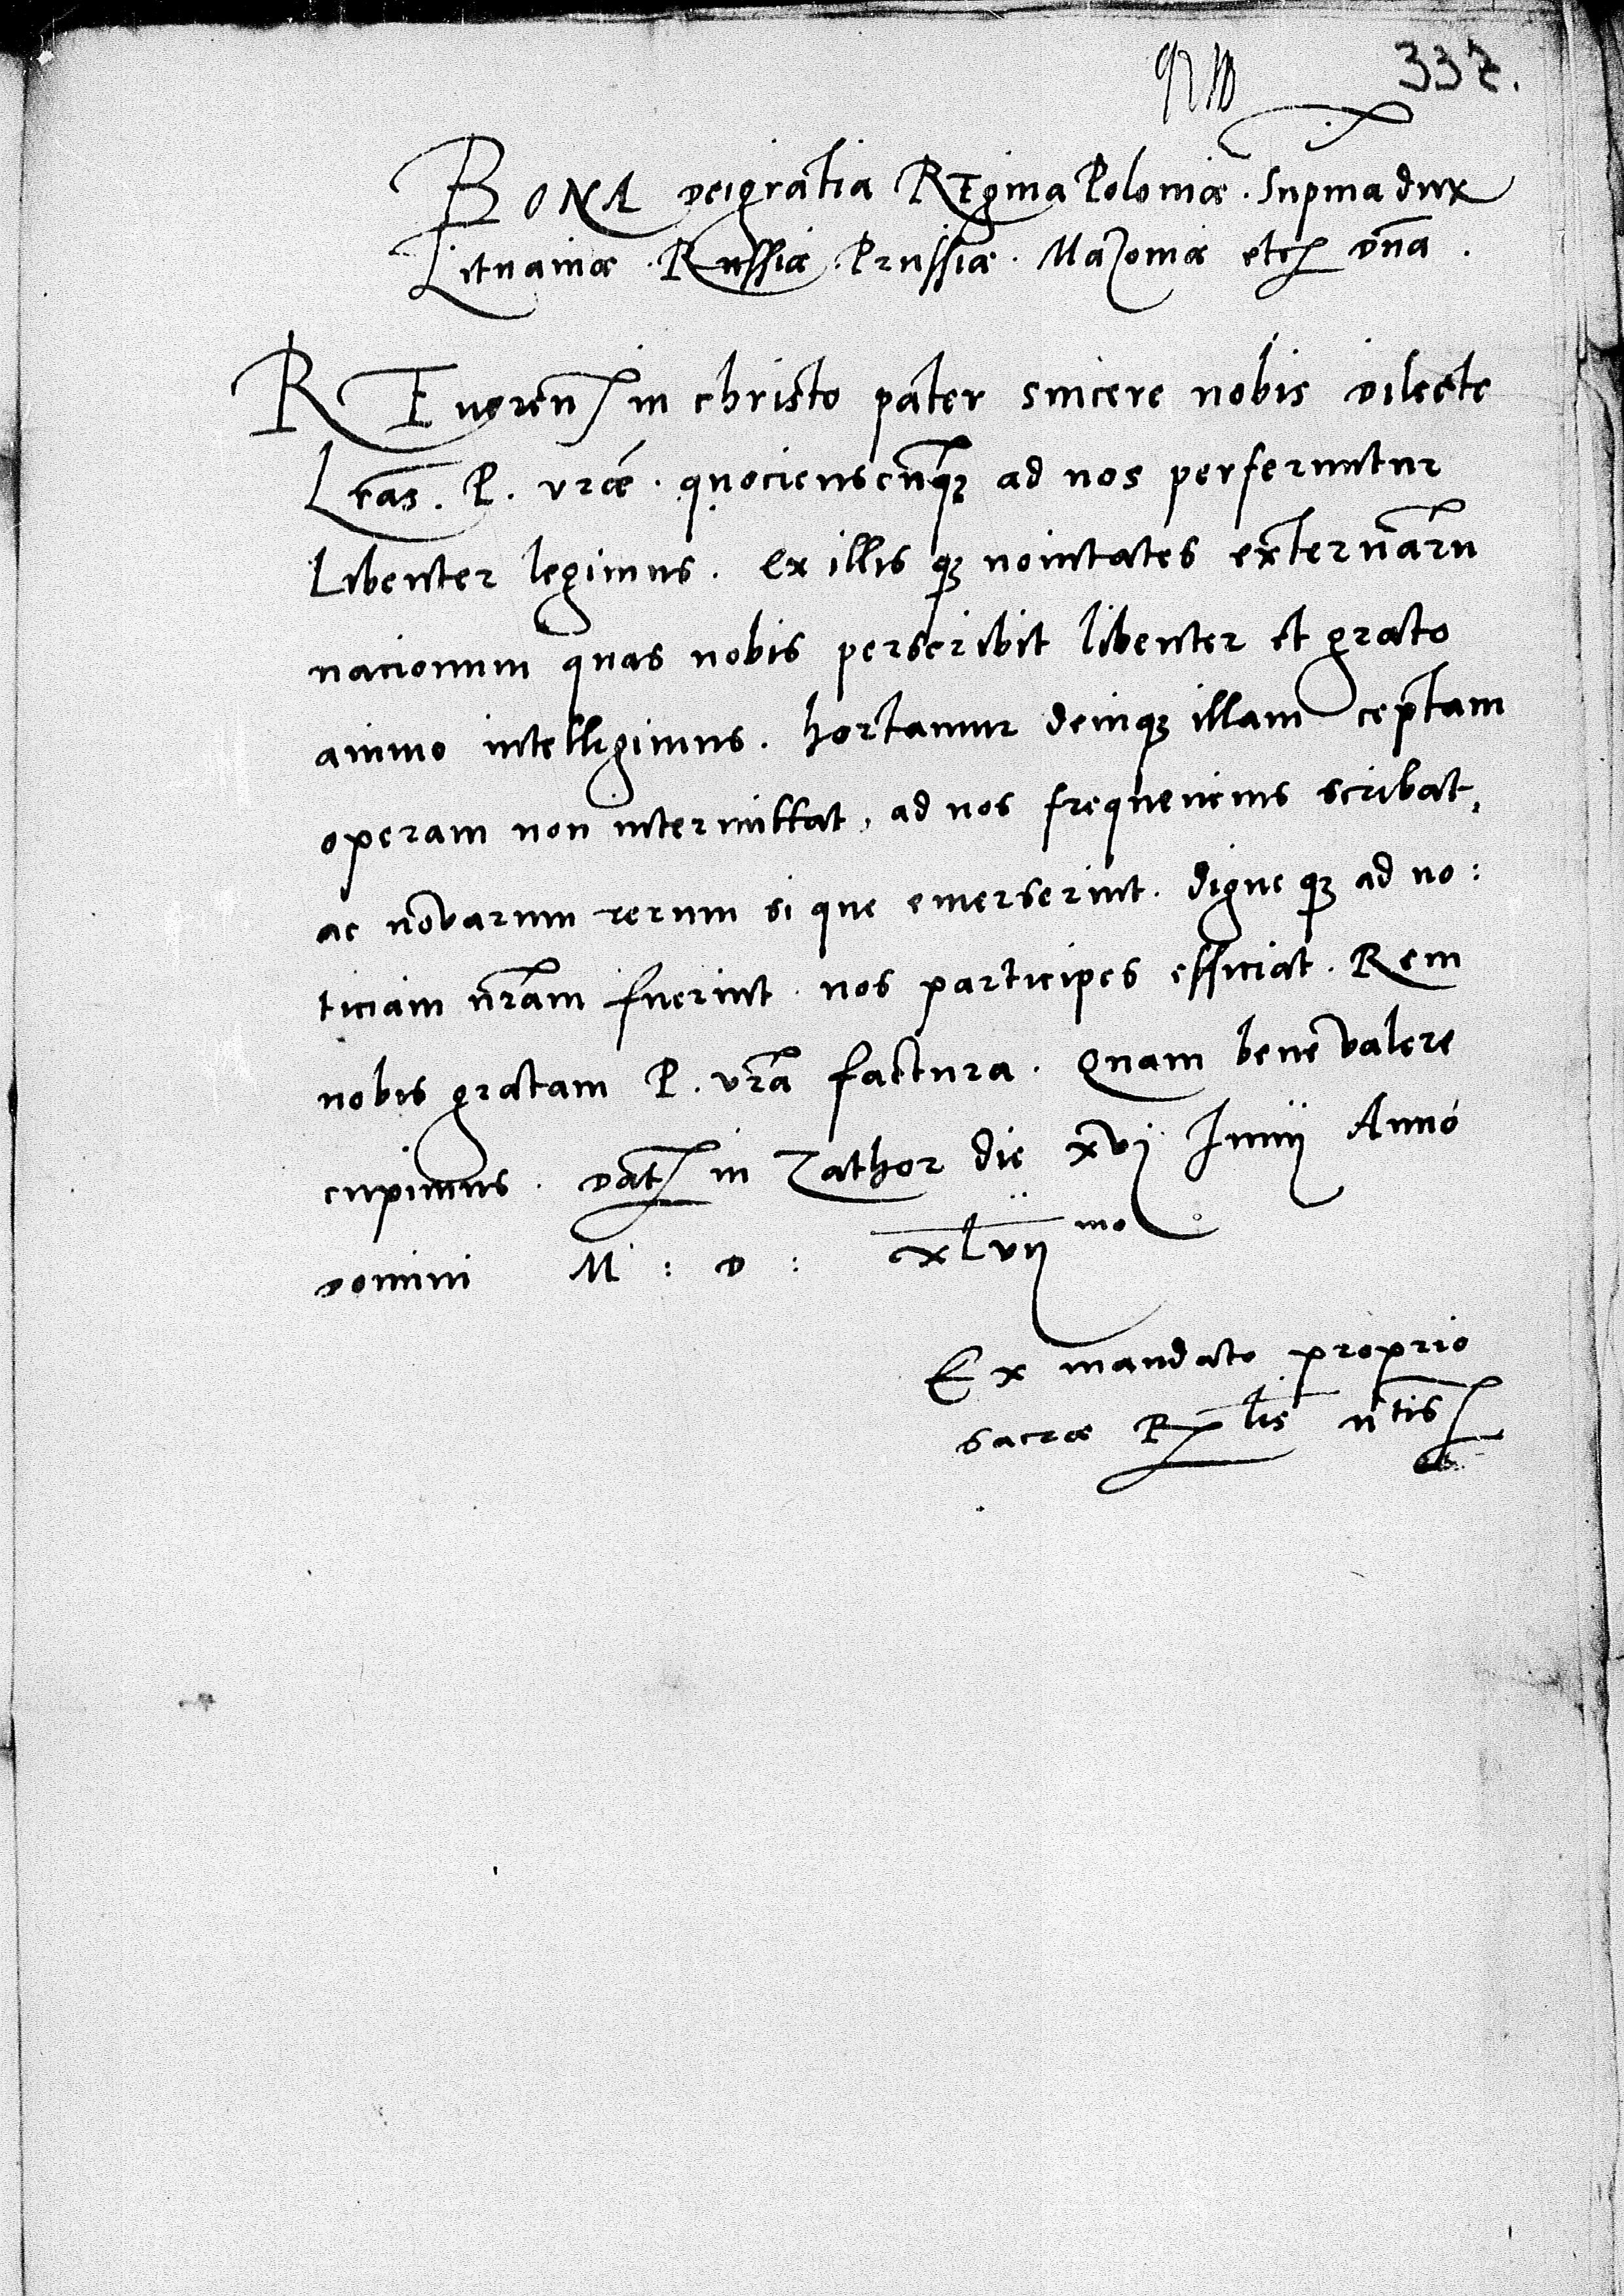 337.
BONA dei gratia REgina Poloniæ. Supma dux
Lituaniæ. Russiæ. Prussiæ. Mazouiæ etc̃ dña.
REueren̄ in christo pater sincere nobis dilecte
Lr̃as. P. vr̃æ. quocienscũq3 ad nos perferuntur
libenter legimus. Ex illis q3 nouitates externarũ
nacionum quas nobis perscribit libenter et grato
animo intelligimus. hortamur deinq3 illam ceptam
operam non intermittat, ad nos frequencius scribat,
ac novarum rerum si que emerserint. digne q3 ad no:
ticiam nr̃am fuerint. nos participes efficiat. Rem
nobis gratam P. vr̃a factura. Quam bene valere
cupimus. dat̃ in Zathor die xvj Junij Anno
domini M : D : xlvijmo
Ex mandato proprio
sacræ R lis̃ ñtis